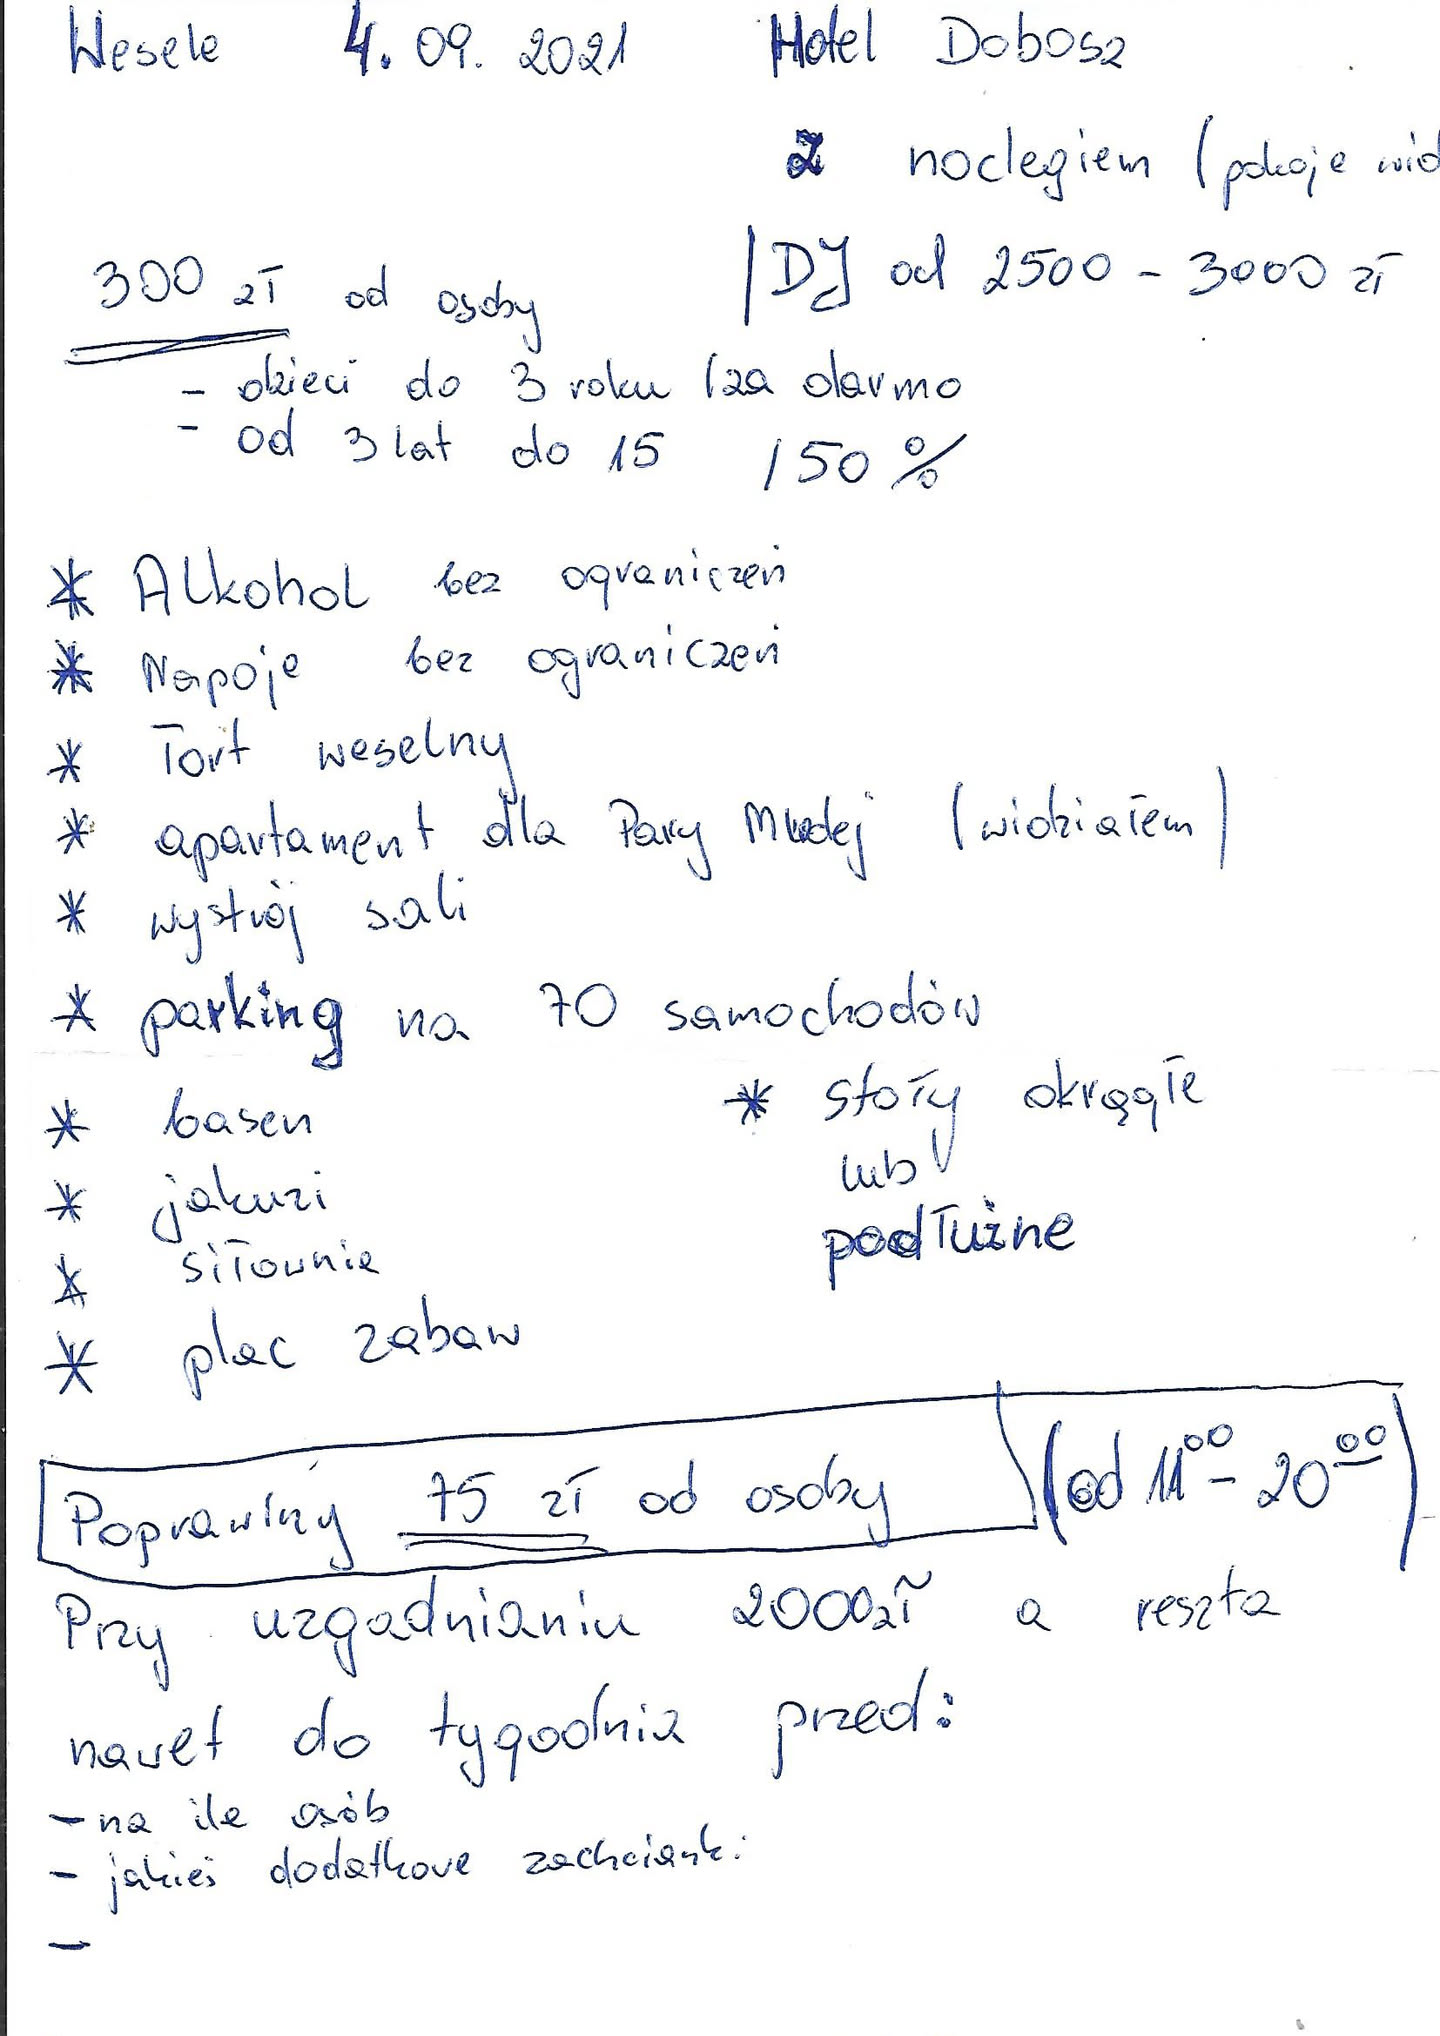 Wesele 4. 09. 2021 Hotel Dobosz
z noclegiem (pokoje wid
300 zł od osoby
|DJ od 2500 - 3000 zł
- dzieci do 3 roku (za darmo
- od 3 lat do 15 / 50 %
* Alkohol bez ograniczeń
* Napoje bez ograniczeń
* Tort weselny
* apartament dla Pary Młodej (widziałem)
* wystrój sali
* parking na 70 samochodów
* basen
* jakuzi
* siłownie
* plac zabaw
* stoły okrągłe
lub
podłużne
Poprawiny 75 zł od osoby (od 11 00 - 20 00)
Przy uzgadnianiu 2000zł a reszta
nawet do tygodnia przed:
- na ile osób
- jakieś dodatkowe zachcianki
-